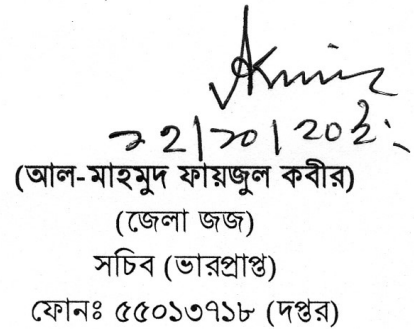 (আল-মাহমুদ ফায়জুল কবীর)
(জেলা জজ)
সচিব (ভারপ্রাপ্ত)
ফোনঃ ৫৫০১৩৭১৮ (দপ্তর)